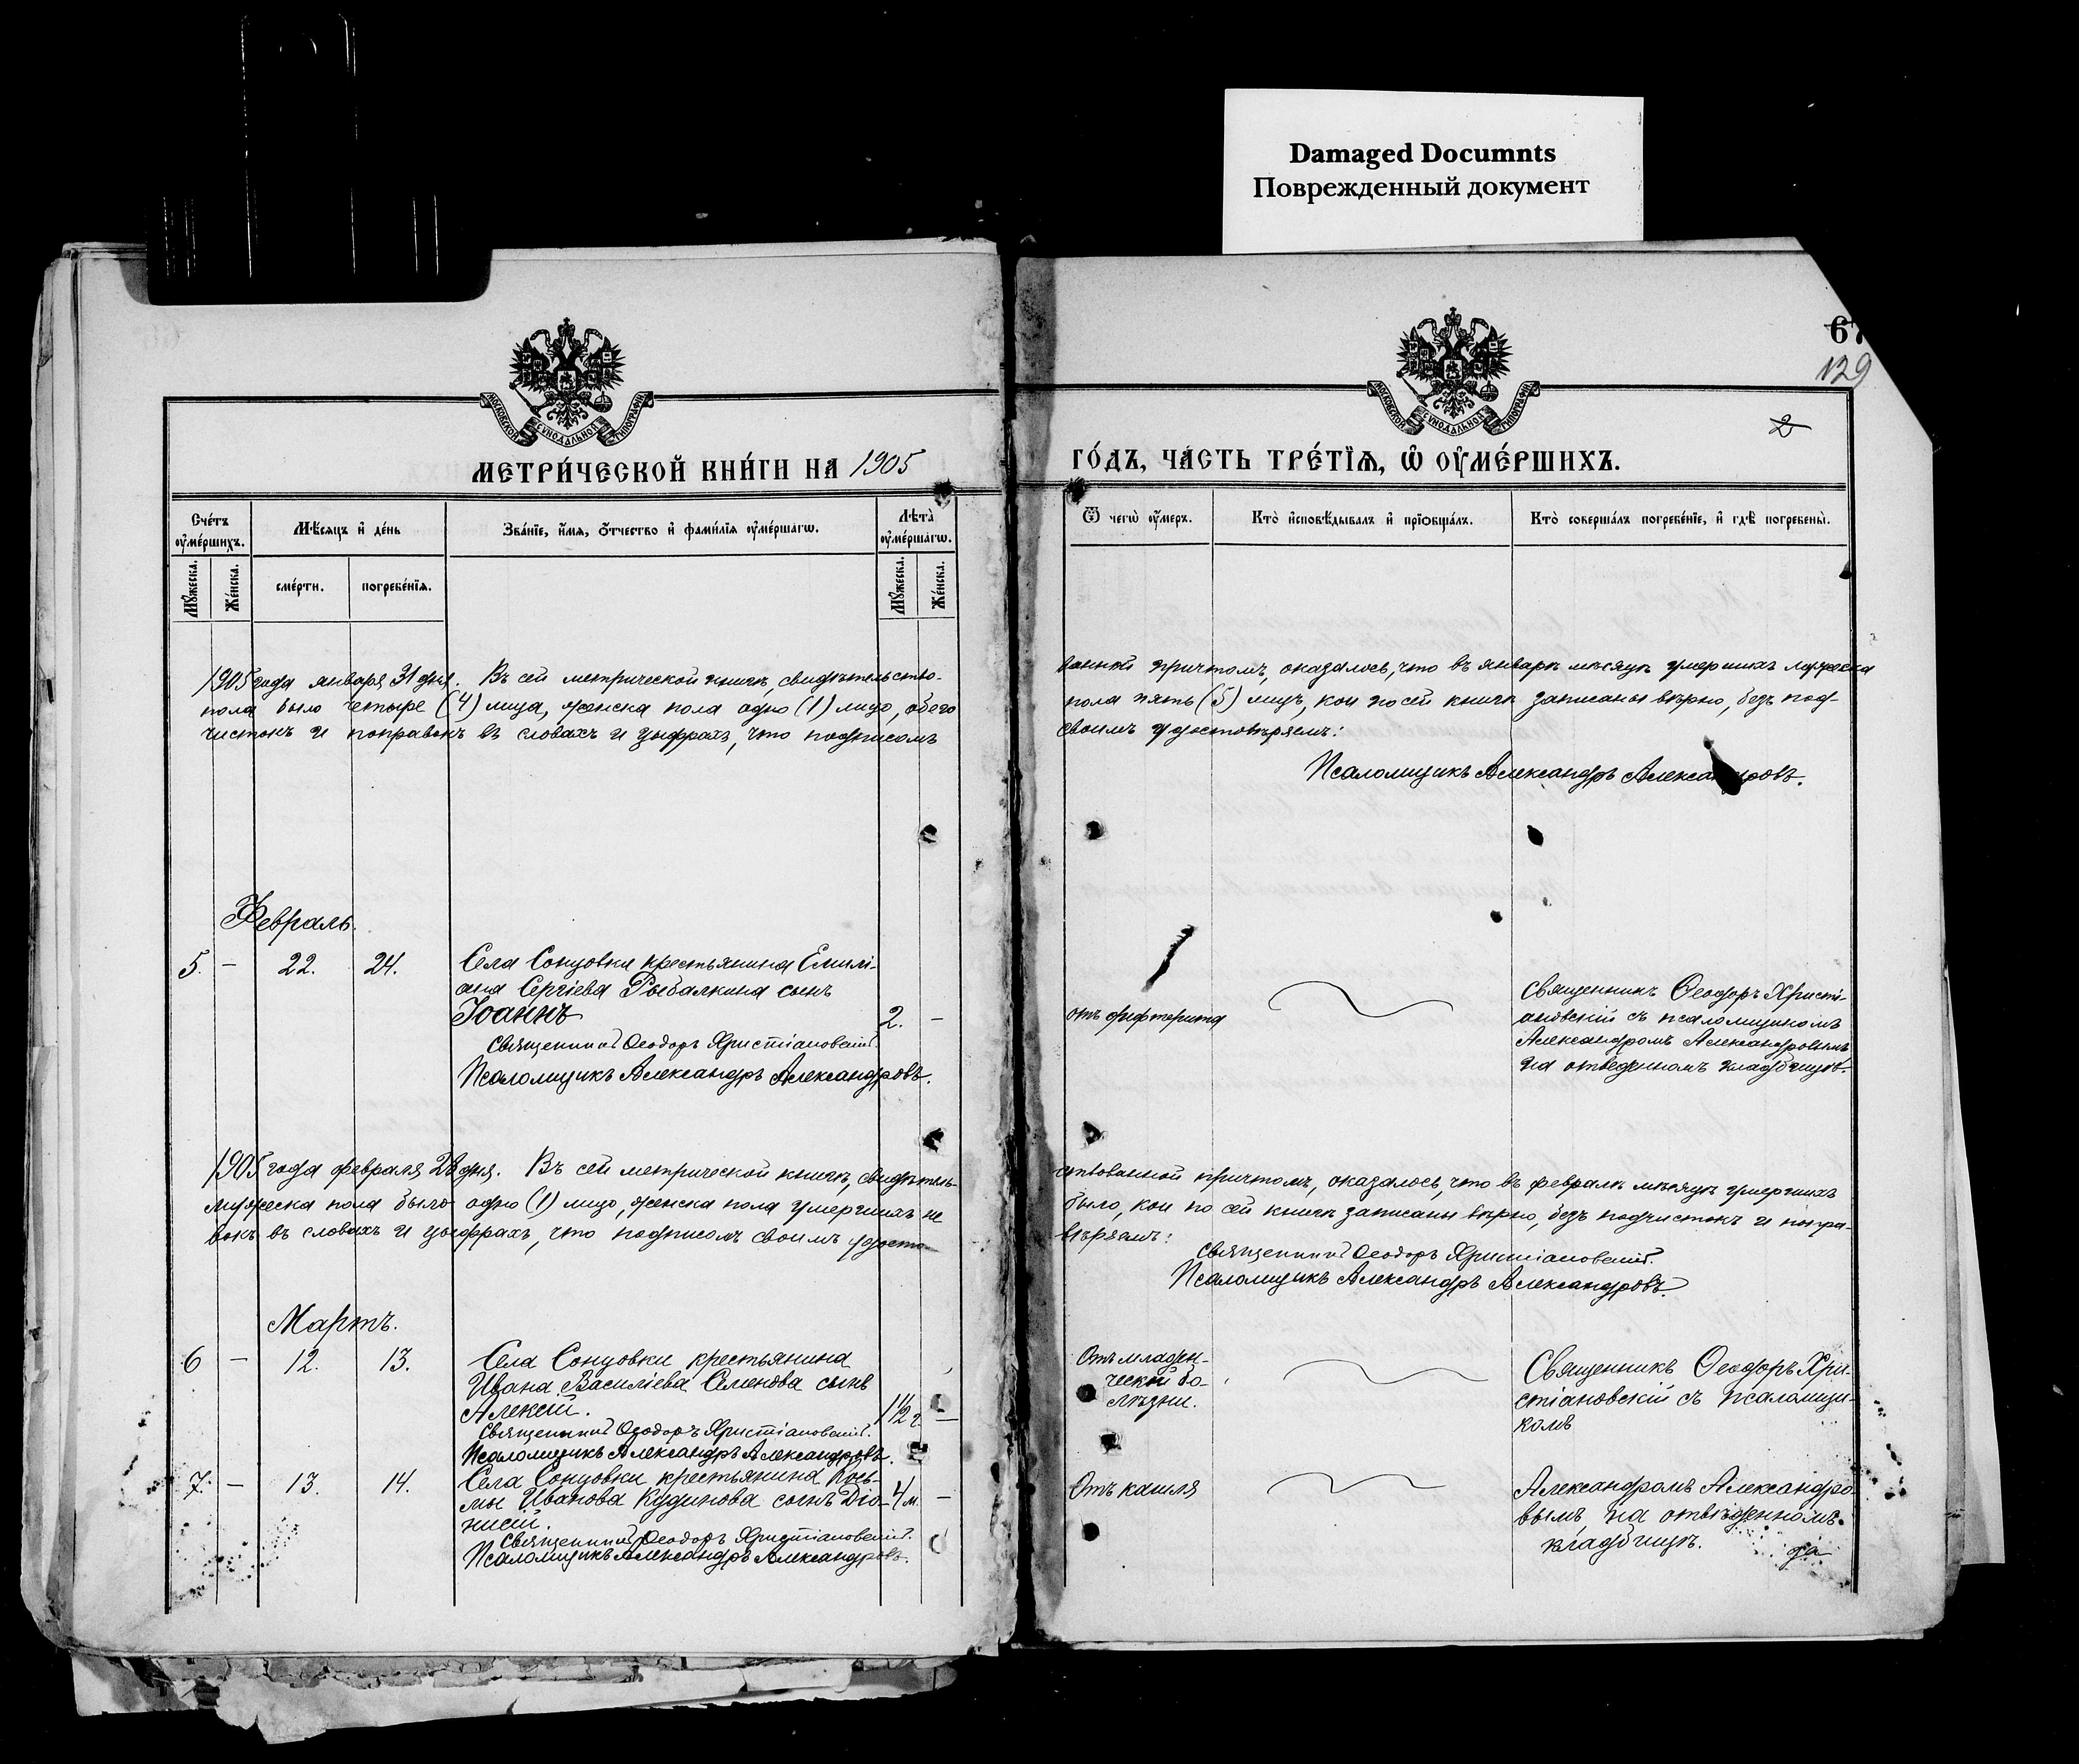 Damaged Documnts
Поврежденный документ
67
129
2
МОСКОВСКОЙ СУНОДАЛЬНОЙ ТИПОГРАФІИ
МОСКОВСКОЙ СУНОДАЛЬНОЙ ТИПОГРАФІИ
МЕТРИ́ЧЕСКОЙ КНИ́ГИ НА 1905
ГО́ДЪ, ЧА́СТЬ ТРЕ́ТЇѦ, Ѡ҆ ОУ҆МЕ́РШИХЪ.
Сче́тъ оу҆ме́ршихъ.
Мꙋ́жеска.
Же́нска.
Мѣ́сяцъ и҆ де́нь
сме́рти.
погребе́нїѧ.
Зва́нїе, и҆́мѧ, ѻ҆́тчество и҆ фами́лїѧ оу҆ме́ршагѡ.
Лѣ́та̀ оу҆ме́ршагѡ.
Мꙋ́жеска.
Же́нска.
Ѿ чегѡ̀ оу҆́меръ.
Кто̀ и҆сповѣ́дывалъ и҆ прїѻбща́лъ.
Кто̀ соверша́лъ погребе́нїе, и҆ гдѣ̀ погребены̀.
1905 года января 31 дня. Въ сей метрической книгѣ, свидѣтельство-
ванной причтомъ, оказалось, что въ январѣ мѣсяцѣ умершихъ мужеска
пола было четыре (4) лица, женска пола одно (1) лицо, обего
пола пять (5) лицъ, кои по сей книгѣ записаны вѣрно, безъ под-
чистокъ и поправокъ въ словахъ и цыфрахъ, что подписомъ
своимъ удостовѣряемъ:
Псаломщикъ Александръ Александровъ.
Февраль.
5. – 22. 24.
Села Сонцовки крестьянина Емилі-
ана Сергіева Рыбалкина сынъ
Іоаннъ
2. –
Священникъ Ѳеодоръ Христіановскій.
Псаломщикъ Александръ Александровъ.
отъ дифтерита
Священникъ Ѳеодоръ Христі-
ановскій съ псаломщикомъ
Александромъ Александровымъ
на отведенномъ кладбищѣ.
1905 года февраля 28 дня. Въ сей метрической книгѣ, свидѣтель-
ствованной причтомъ, оказалось, что въ февралѣ мѣсяцѣ умершихъ
мужеска пола было одно (1) лицо, женска пола умершихъ не
было, кои по сей книгѣ записаны вѣрно, безъ подчистокъ и попра-
вокъ въ словахъ и цыфрахъ, что подписомъ своимъ удосто-
вѣряемъ:
Священникъ Ѳеодоръ Христіановскій.
Псаломщикъ Александръ Александровъ.
Мартъ.
6 – 12. 13.
Села Сонцовки крестьянина
Ивана Василіева Сленова сынъ
Алексій.
1 1/2 г. –
Священникъ Ѳеодоръ Христіановскій.
Псаломщикъ Александръ Александровъ.
Отъ младен-
ческой бо-
лѣзни.
Священникъ Ѳеодоръ Хри-
стіановскій съ псаломщи-
комъ
7. – 13. 14.
Села Сонцовки крестьянина Кось-
мы Иванова Кудинова сынъ Діо-
нисій.
4 м. –
Священникъ Ѳеодоръ Христіановскій.
Псаломщикъ Александръ Александровъ.
Отъ кашля
Александромъ Александро-
вымъ на отведенномъ
кладбищѣ.